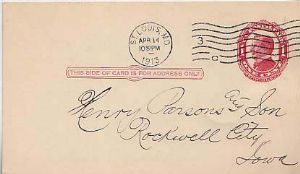 ST. LOUIS, MO.
APR 14
10:30 PM
1913
3
THIS SIDE OF CARD IS FOR ADDRESS ONLY
Henry Parsons & Son
Rockwell City
Iowa